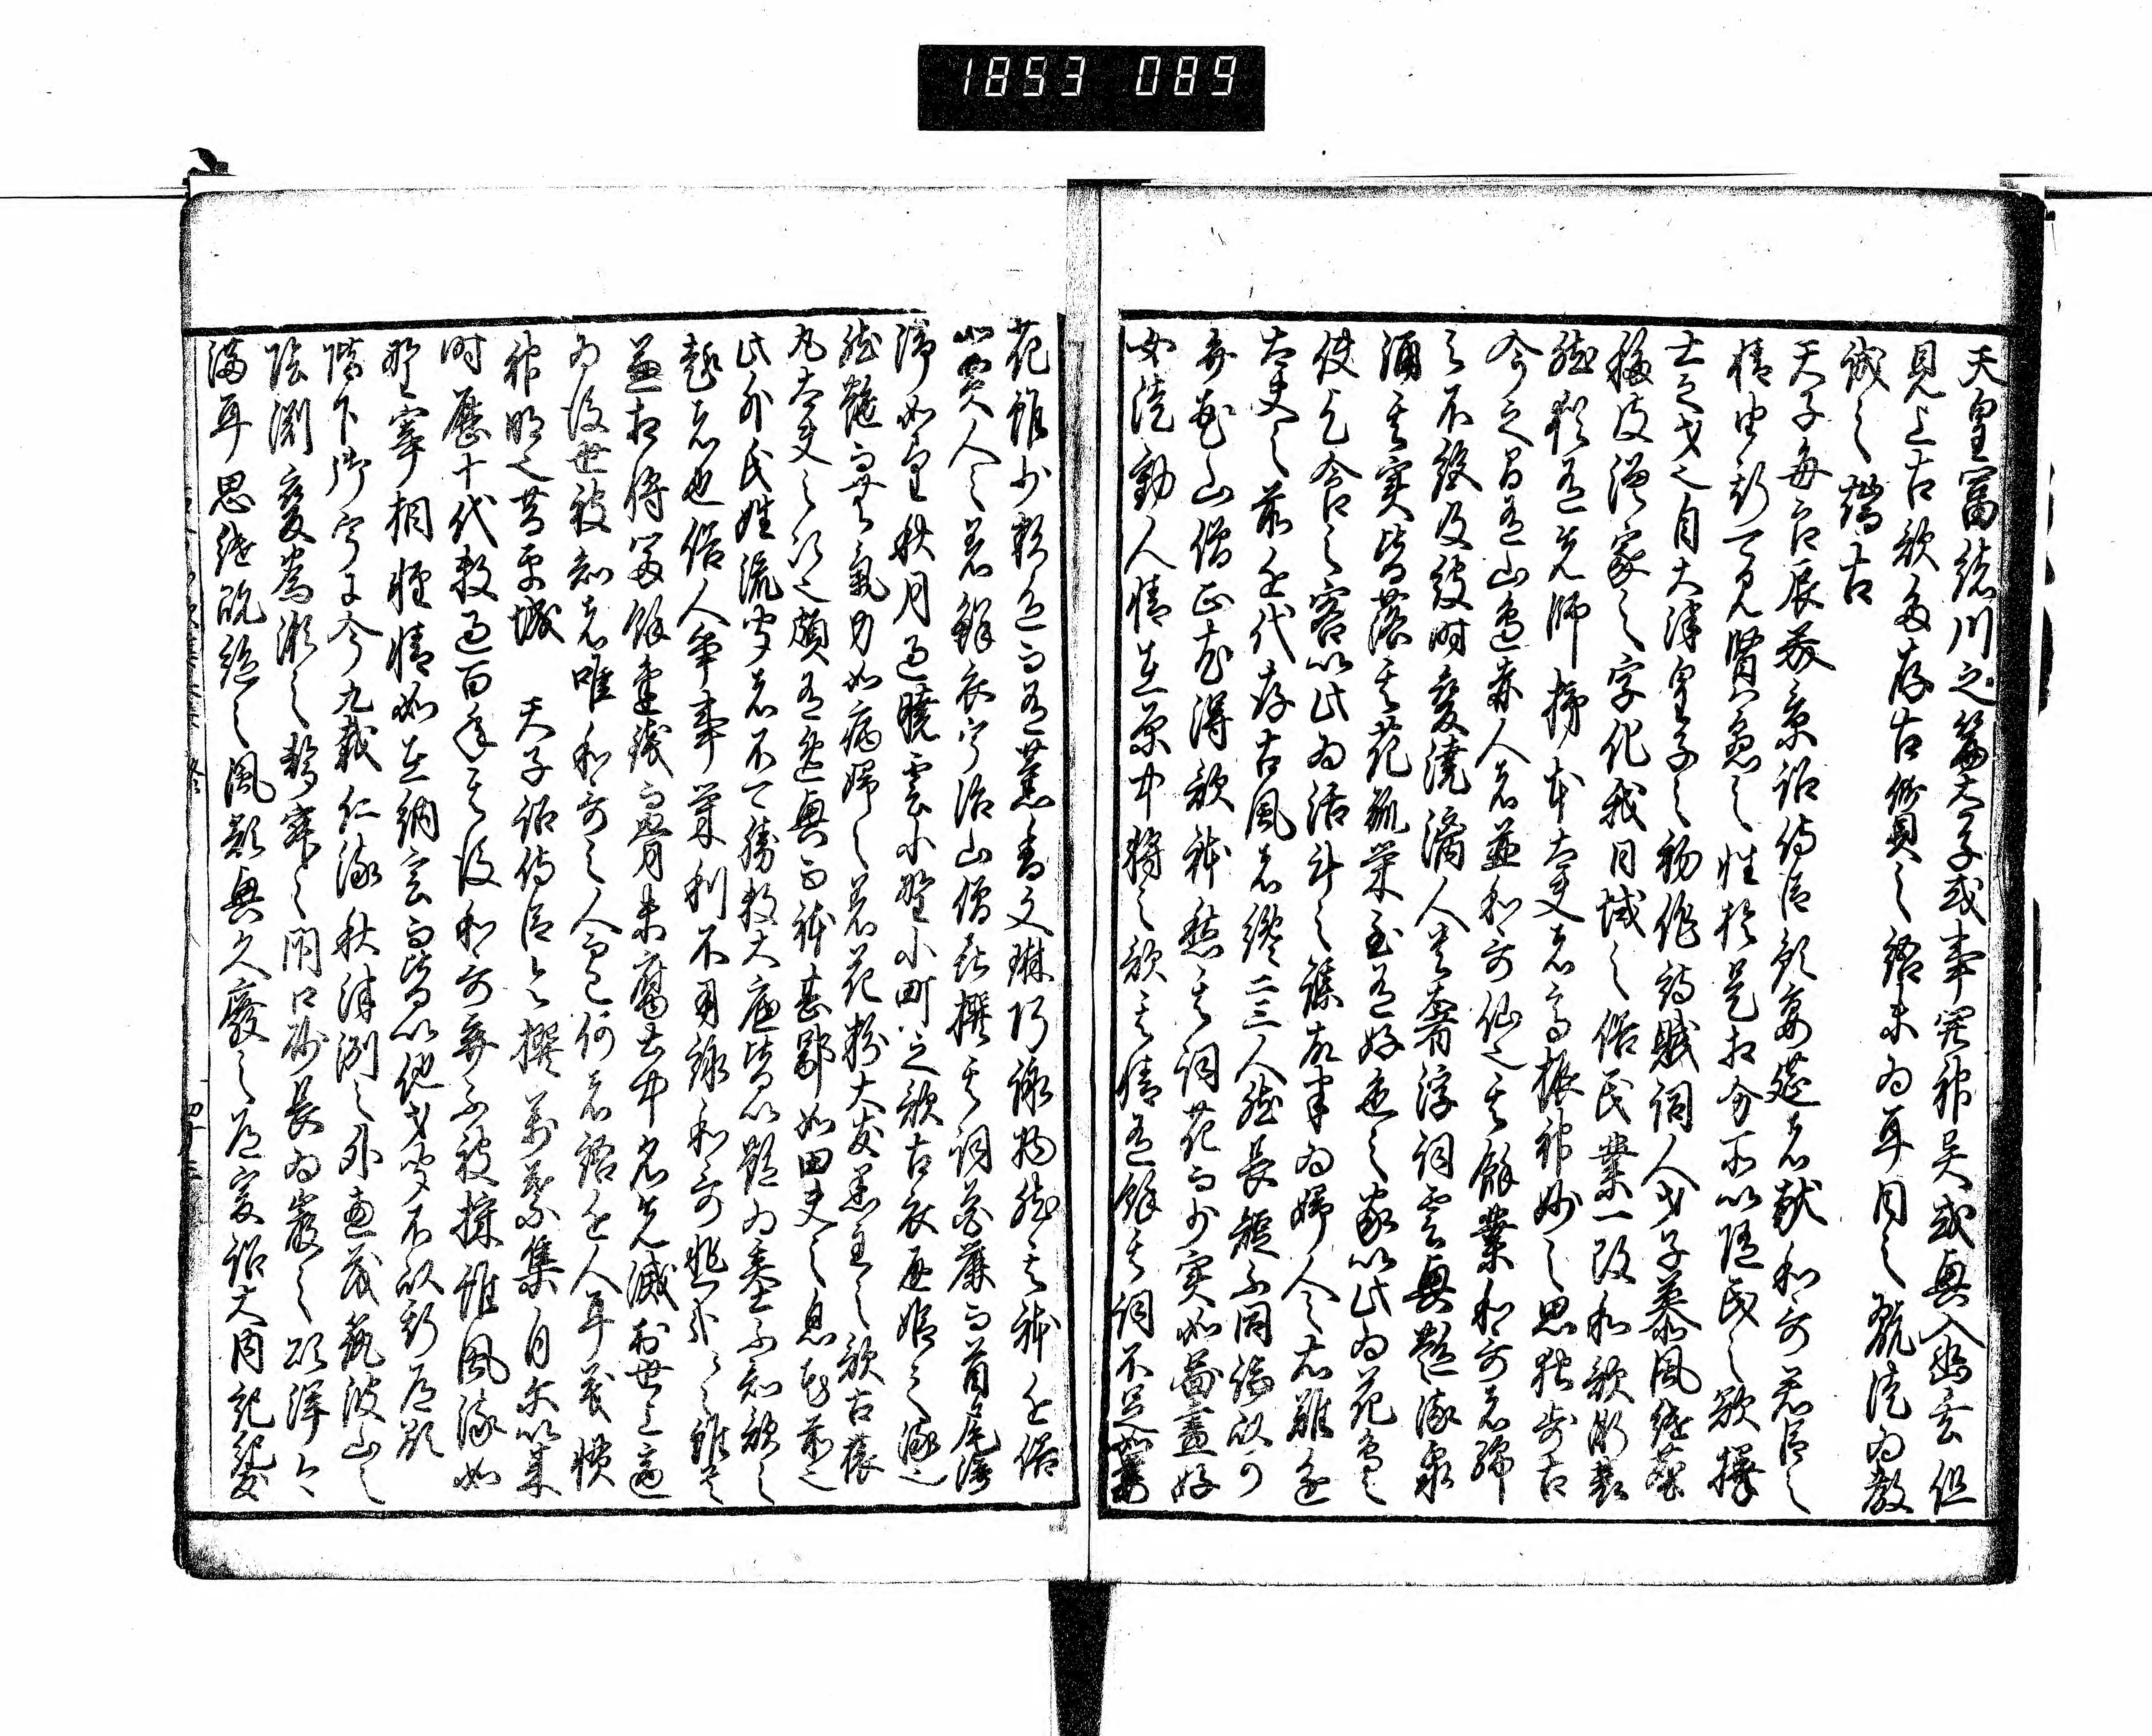 天皇富緒川之篇太子或事関神異或興入幽玄但
見上古歌多存古質之語未為耳目之翫徒為教
誡之端古
天子毎良辰美景詔侍臣預宴莚者献和哥君臣之
情由斯可見賢愚之性於是相分所以随民之欲擇
士之才也自大津皇子之初作詩賦詞人才子慕風継塵
移彼漢家之字化我日域之俗民業一改和歌漸衰
然猶有先師柿本大夫者高振神妙之思独歩古
今之間有山邊赤人者並和哥仙也其餘業和哥者綿
々不絶及彼時變澆漓人貴奢淫浮詞雲興艶流泉
涌其実皆落其花孤栄至有好色之家以此為花鳥之
使乞食之客以此為活計之謀故半為婦人之右難進
大夫之前近代存古風者纔二三人然長短不同論以可
弁花山僧正尤得歌躰然其詞花而少実如図畫好
女徒動人情在原中将之歌其情有餘其詞不足如萎
花雖少彩色而有薫香文琳巧詠物然其躰近俗
如賈人之着鮮衣宇治山僧喜撰其詞花麗而首尾停
滞如望秋月遇暁雲小野小町之歌古衣通姫之流也
然艶而無氣力如病婦之着花粉大友黒主之歌古猿
丸大夫之次也頗有逸興而躰甚鄙如田夫之息花前也
此外氏姓流聞者不可勝数大底皆以艶為基不知歌之
趣者也俗人争事栄利不用詠和哥悲哉々々雖貴
兼相将富餘金銭而骨未腐土中名先滅於世上適
為後世被知者唯和哥之人而已何者語近人耳義慣
神明也昔平城　天子詔侍臣令撰万葉集自尓以来
時歴十代数過百年其後和哥弃不被採雖風流如
野宰相軽情如在納言而皆以他才聞不以斯道顕
陛下御宇于今九載仁流秋津洲之外恵茂筑波山之
陰渕變為瀬之聲寂々閉口砂長為巌之頌洋々
満耳思継既絶之風欲興久廢之道爰詔大内記紀友